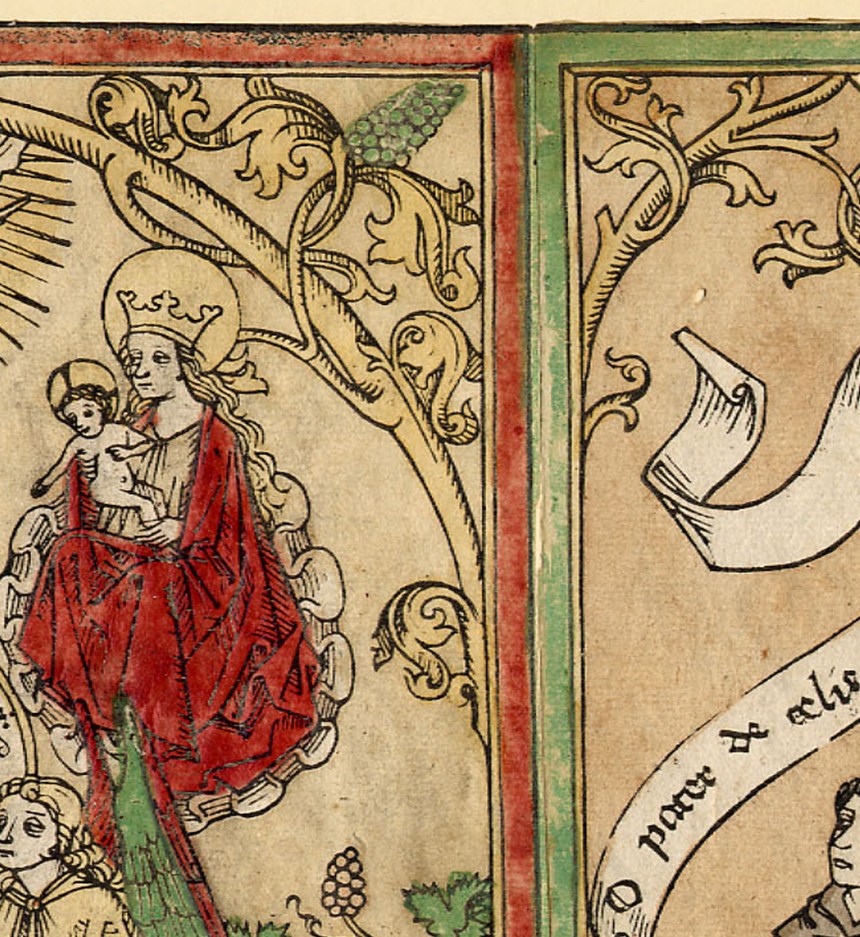 O pater de celis